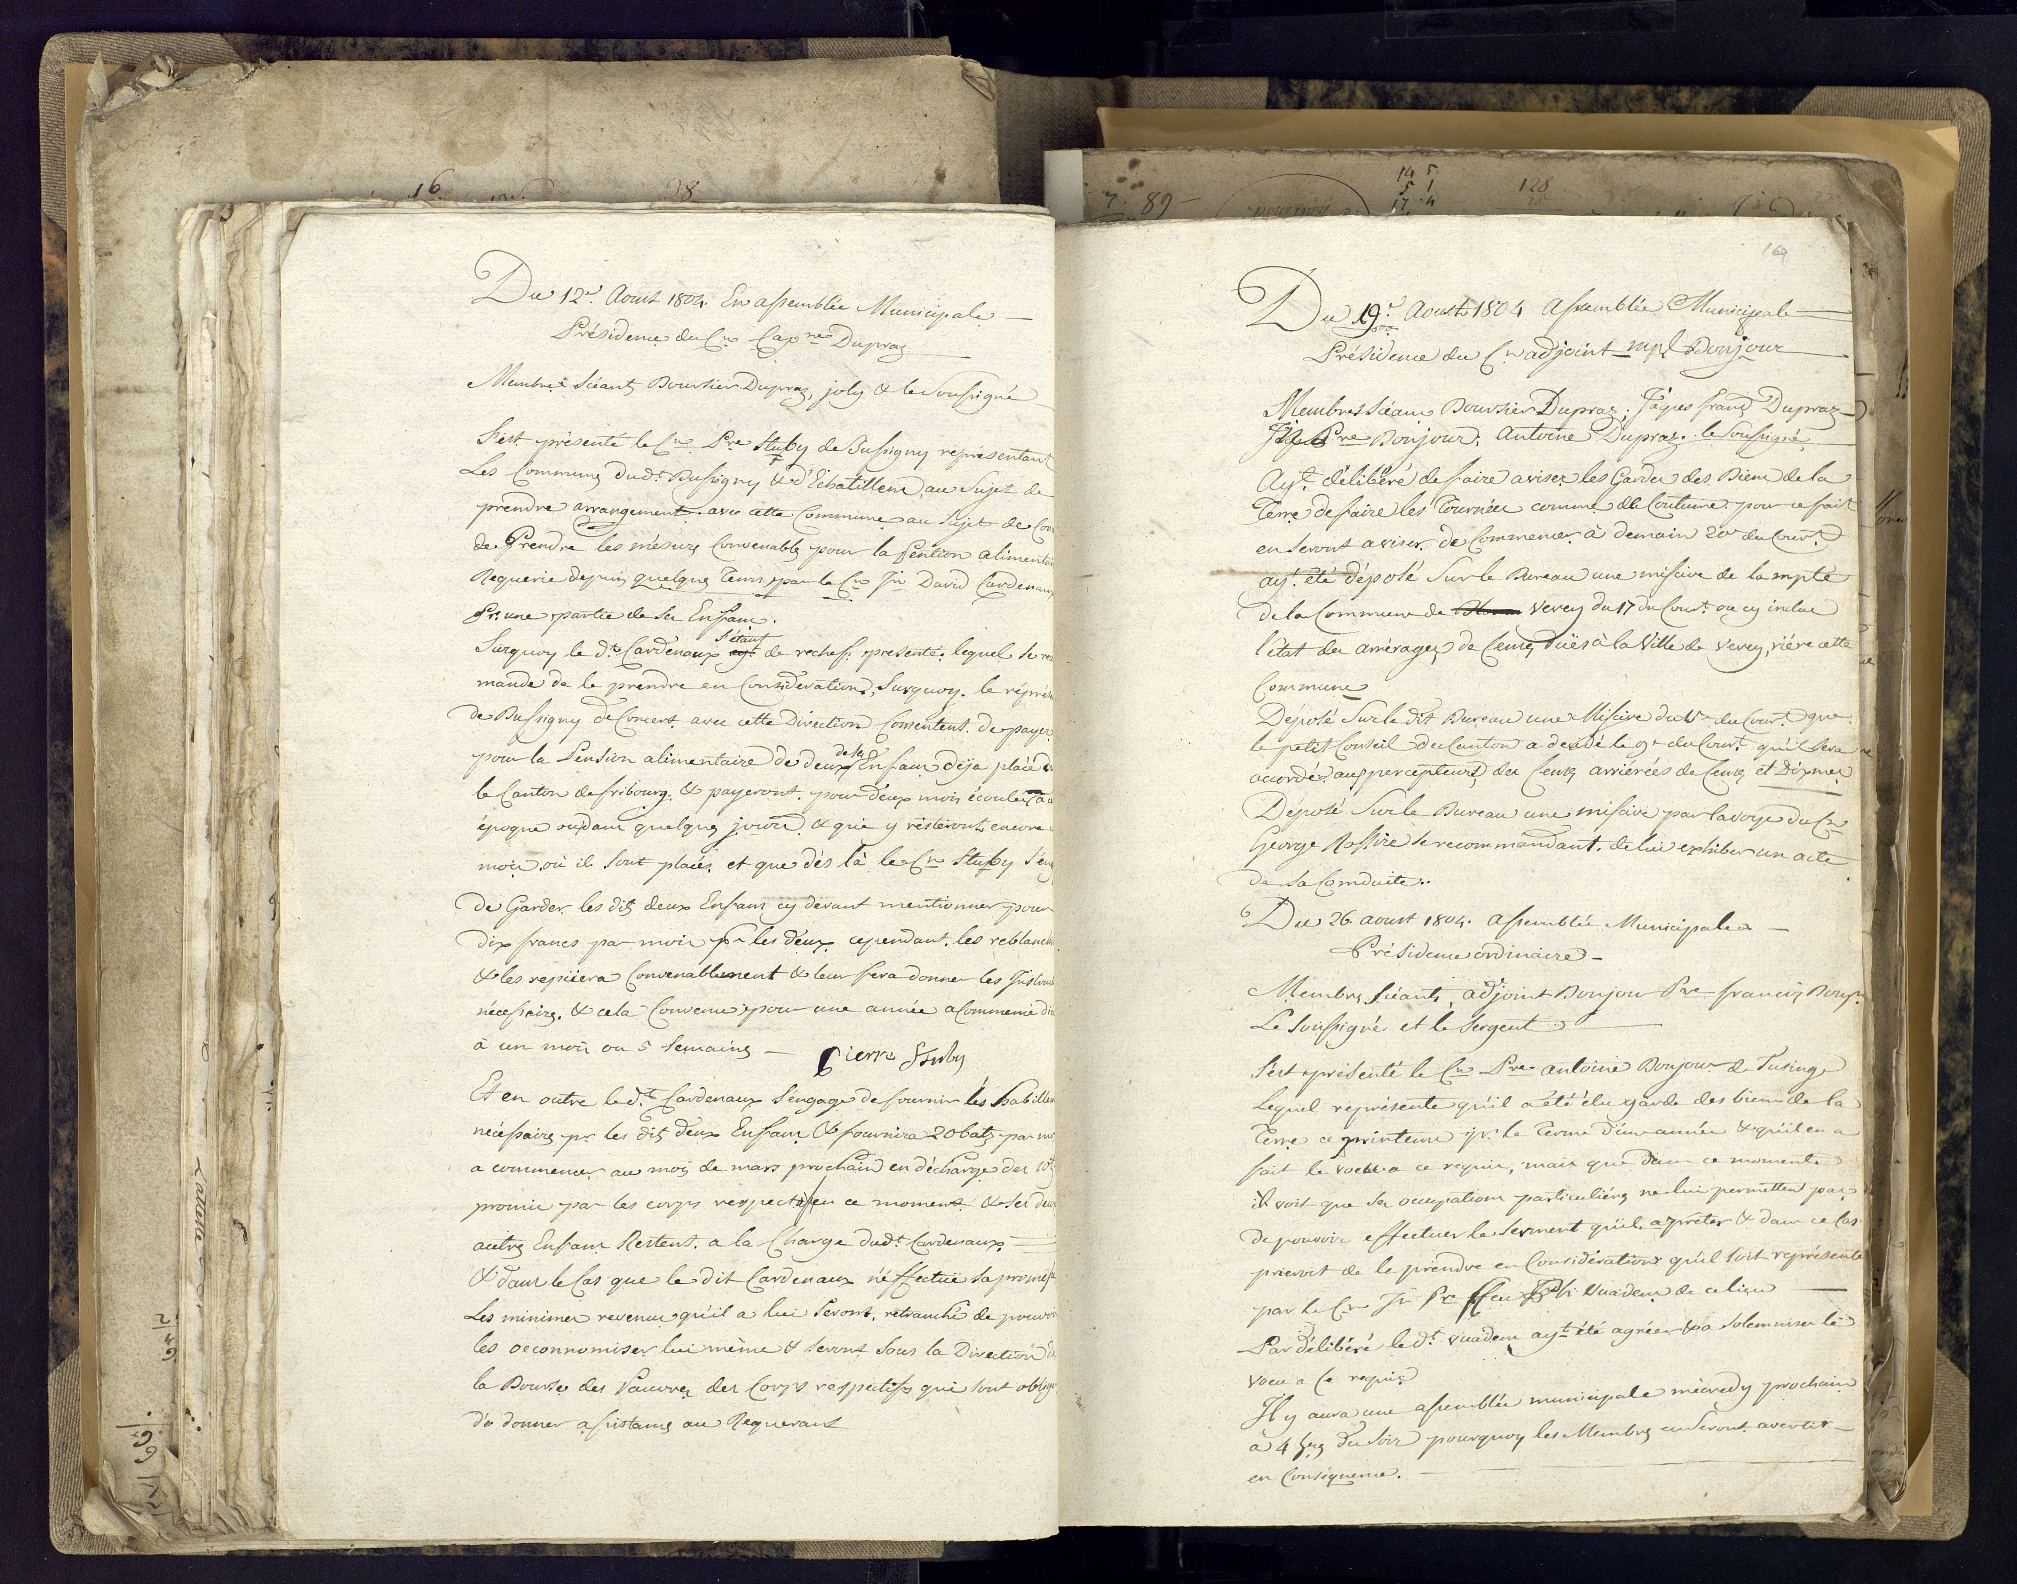 16
28
Du 12e. Aoust 1804. En assemblée Municipale
Présidence du Cn Capne Dupraz
Membres Séants Boursier Dupraz, joly & le Soussigné
S'est présenté le Cn Pre Stuby de Bussigny représentant
Les Communes dudt Bussigny & d'Echatillens, au Sujet de
prendre arrangement avec cette Commune au Sujet de
de Prendre les mésures Convenables pour la pention alimentai
Requerie depuis quelques Tems par le Cn Jn David Cardenaux
Pr. une partie de ses Enfans.
Surquoy le dt. Cardenaux s'étant de rechef présenté, lequel se re
mande de le prendre en Considération, Surquoy le répré
de Bussigny de Concert avec cette Direction Consentent de payer
pour la Pension alimentaire de deux de ses Enfans déja placé
le Canton de fribourg, & payeront pour deux mois écoulés
époque ou dans quelques jours & que y resteront encore
mois où il sont placés, et que dès là le Cn Stuby s'en
De Garder les dits deux Enfans cy devant mentionner pour
Dix francs par mois pr les deux, cependant les reblanchi
& les repiéera Convenablement & leur fera donner les Instru
nécessaires, & cela Convenu pour une année a Commencé
à un mois ou 5 Semaines
Pierre Stuby
Et en outre le dt. Cardenaux s'engage de fournir les habille
nécessaires pr les dits deux Enfans & fournira 20 batz par
a commencer au mois de mars prochain en décharge des
promis par les corps respectifs en ce moment & Ses deux
autres Enfans Restent a la Charge dudt Cardenaux
& dans le Cas que le dit Cardenaux n'effectue sa promesse
Les minimes revenus qu'il a lui seront retranché de pouvoir
les oeconnomiser lui même & seront Sous la Direction
la Bourse des Pauvres des Corps respectifs qui sont obligé
d'y donner assistance au Requerant
7. 89
14 5
5 1
17 4
128
169
Du 19e Aoust 1804 Assemblée Municipale
Présidence du Cn adjoint mpl Bonjour
Membres Séans Boursier Dupraz, Jâques franç Dupraz
Pre Bonjour, Antoine Dupraz, le Soussigné
Ayt. délibéré de faire aviser les Gardes des Biens de la
Terre de faire les Tournées comme de Coutume, pour ce fait
en Seront aviser de Commencer à demain 20e du Court.
ayt. été déposé Sur le Bureau une missive de la mpté
de la Commune de Vevey du 17 du Court. ou cy inclus
l'état des arrérages de Censes düës à la Ville de Vevey, riére cette
Commune
Déposé Sur le dit Bureau une Missive du 15e du Court. que
le petit Conseil du Canton a décidé le 9e du Court. qu'il sera
accordé aux percepteurs des Censes arriérées de Censes et Dixmes
Déposé Sur le Bureau une missive par la voye du Cn
George Rossire se recommandant de lui exhiber un acte
de sa Conduite.
Du 26 aoust 1804. assemblée Municipale
Présidence ordinaire
Membres Séants, adjoint Bonjour Pre francis Bonjr
Le Soussigné et le Sergent
S'est présenté le Cn Pre antoine Bonjour de Fusinge
Lequel représente qu'il a été élu garde des biens de la
Terre ce printems pr. le Terme d'une année & qu'il en a
fait le voeu a ce requis, mais que dans ce moment
il voit que ses occupations particuliéres ne lui permettent pas
de pouvoir effectuer le serment qu'il a prêter & dans ce Cas
prieroit de le prendre en Considération & qu'il soit représenté
par le Cn Jn Pre ffeu Vuadens de ce lieu
Par délibéré le dt. Vuadens ayt été agréer & a Solemniser le
voeu a Ce requis
Il y aura une assemblée municipale mécredy prochain
à 4 hres du Soir pourquoy les Membres en Seront avertir
en Conséquence.